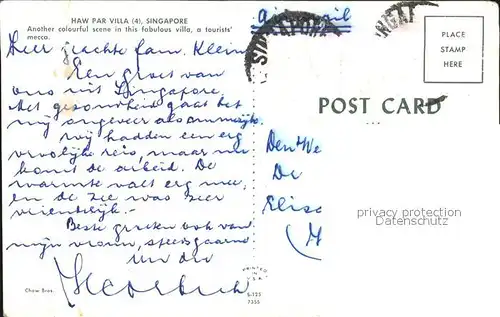 HAW PAR VILLA (4), SINGAPORE
Another colourful scene in this fabulous villa, a tourists'
mecca.
Zeer geachte fam. Klein
Een groet van
ons uit Singapore.
Met gezondheid gaat het
mij ongeveer als
Wij hadden een erg
vrolijke reis, maar nu
komt de arbeid. De
warmte valt erg mee,
en de zee was zeer
vriendelijk.-
Beste groeten ook van
mijn vrouw, steeds gaarne
Uw dw
Chow Bros.
air mail
PLACE
STAMP
HERE
POST CARD
De
Elisa
privacy protection
Datenschutz
PRINTED
IN
U.S.A.
S-125
7355